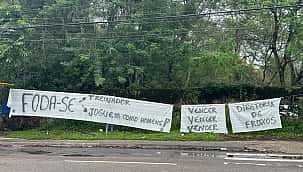 FODA-SE
• TREINADOR
• JOGUEM COMO HOMENS!
VENCER
VENCER
VENCER
DIRETORIA
DE
FROXOS